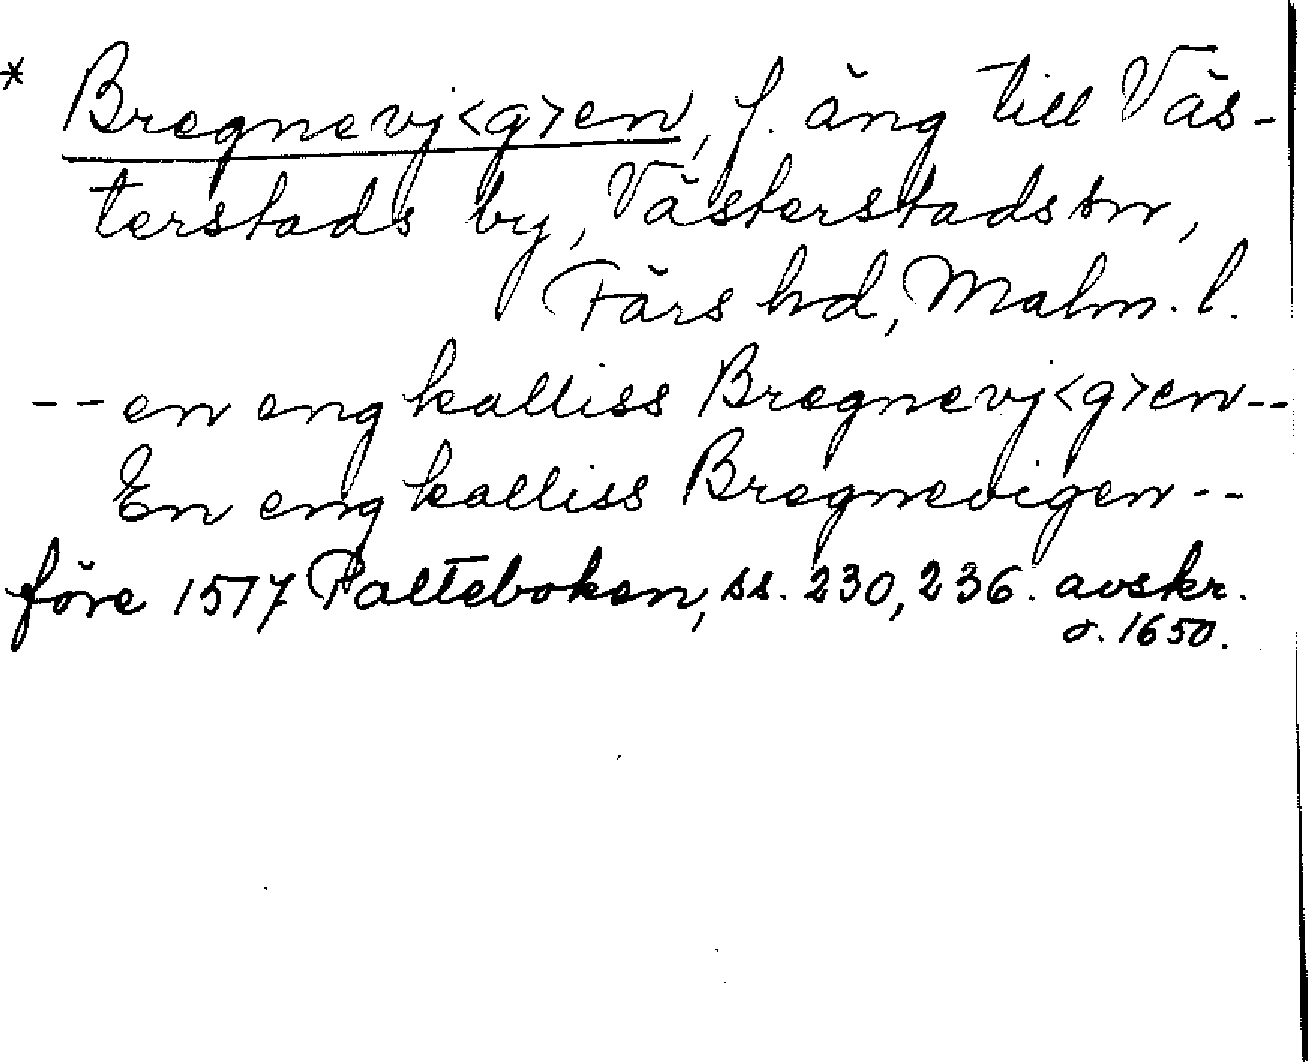 * Bregnevj<g>en, f. äng till Väs-
terstads by, Västerstads sn,
Färs hd, Malm. l.
-- en eng kalliss Bregnevj<g>en --
En eng kalliss Bregnevigen --
före 1517 Palteboken, ss. 230, 236. avskr.
o. 1650.